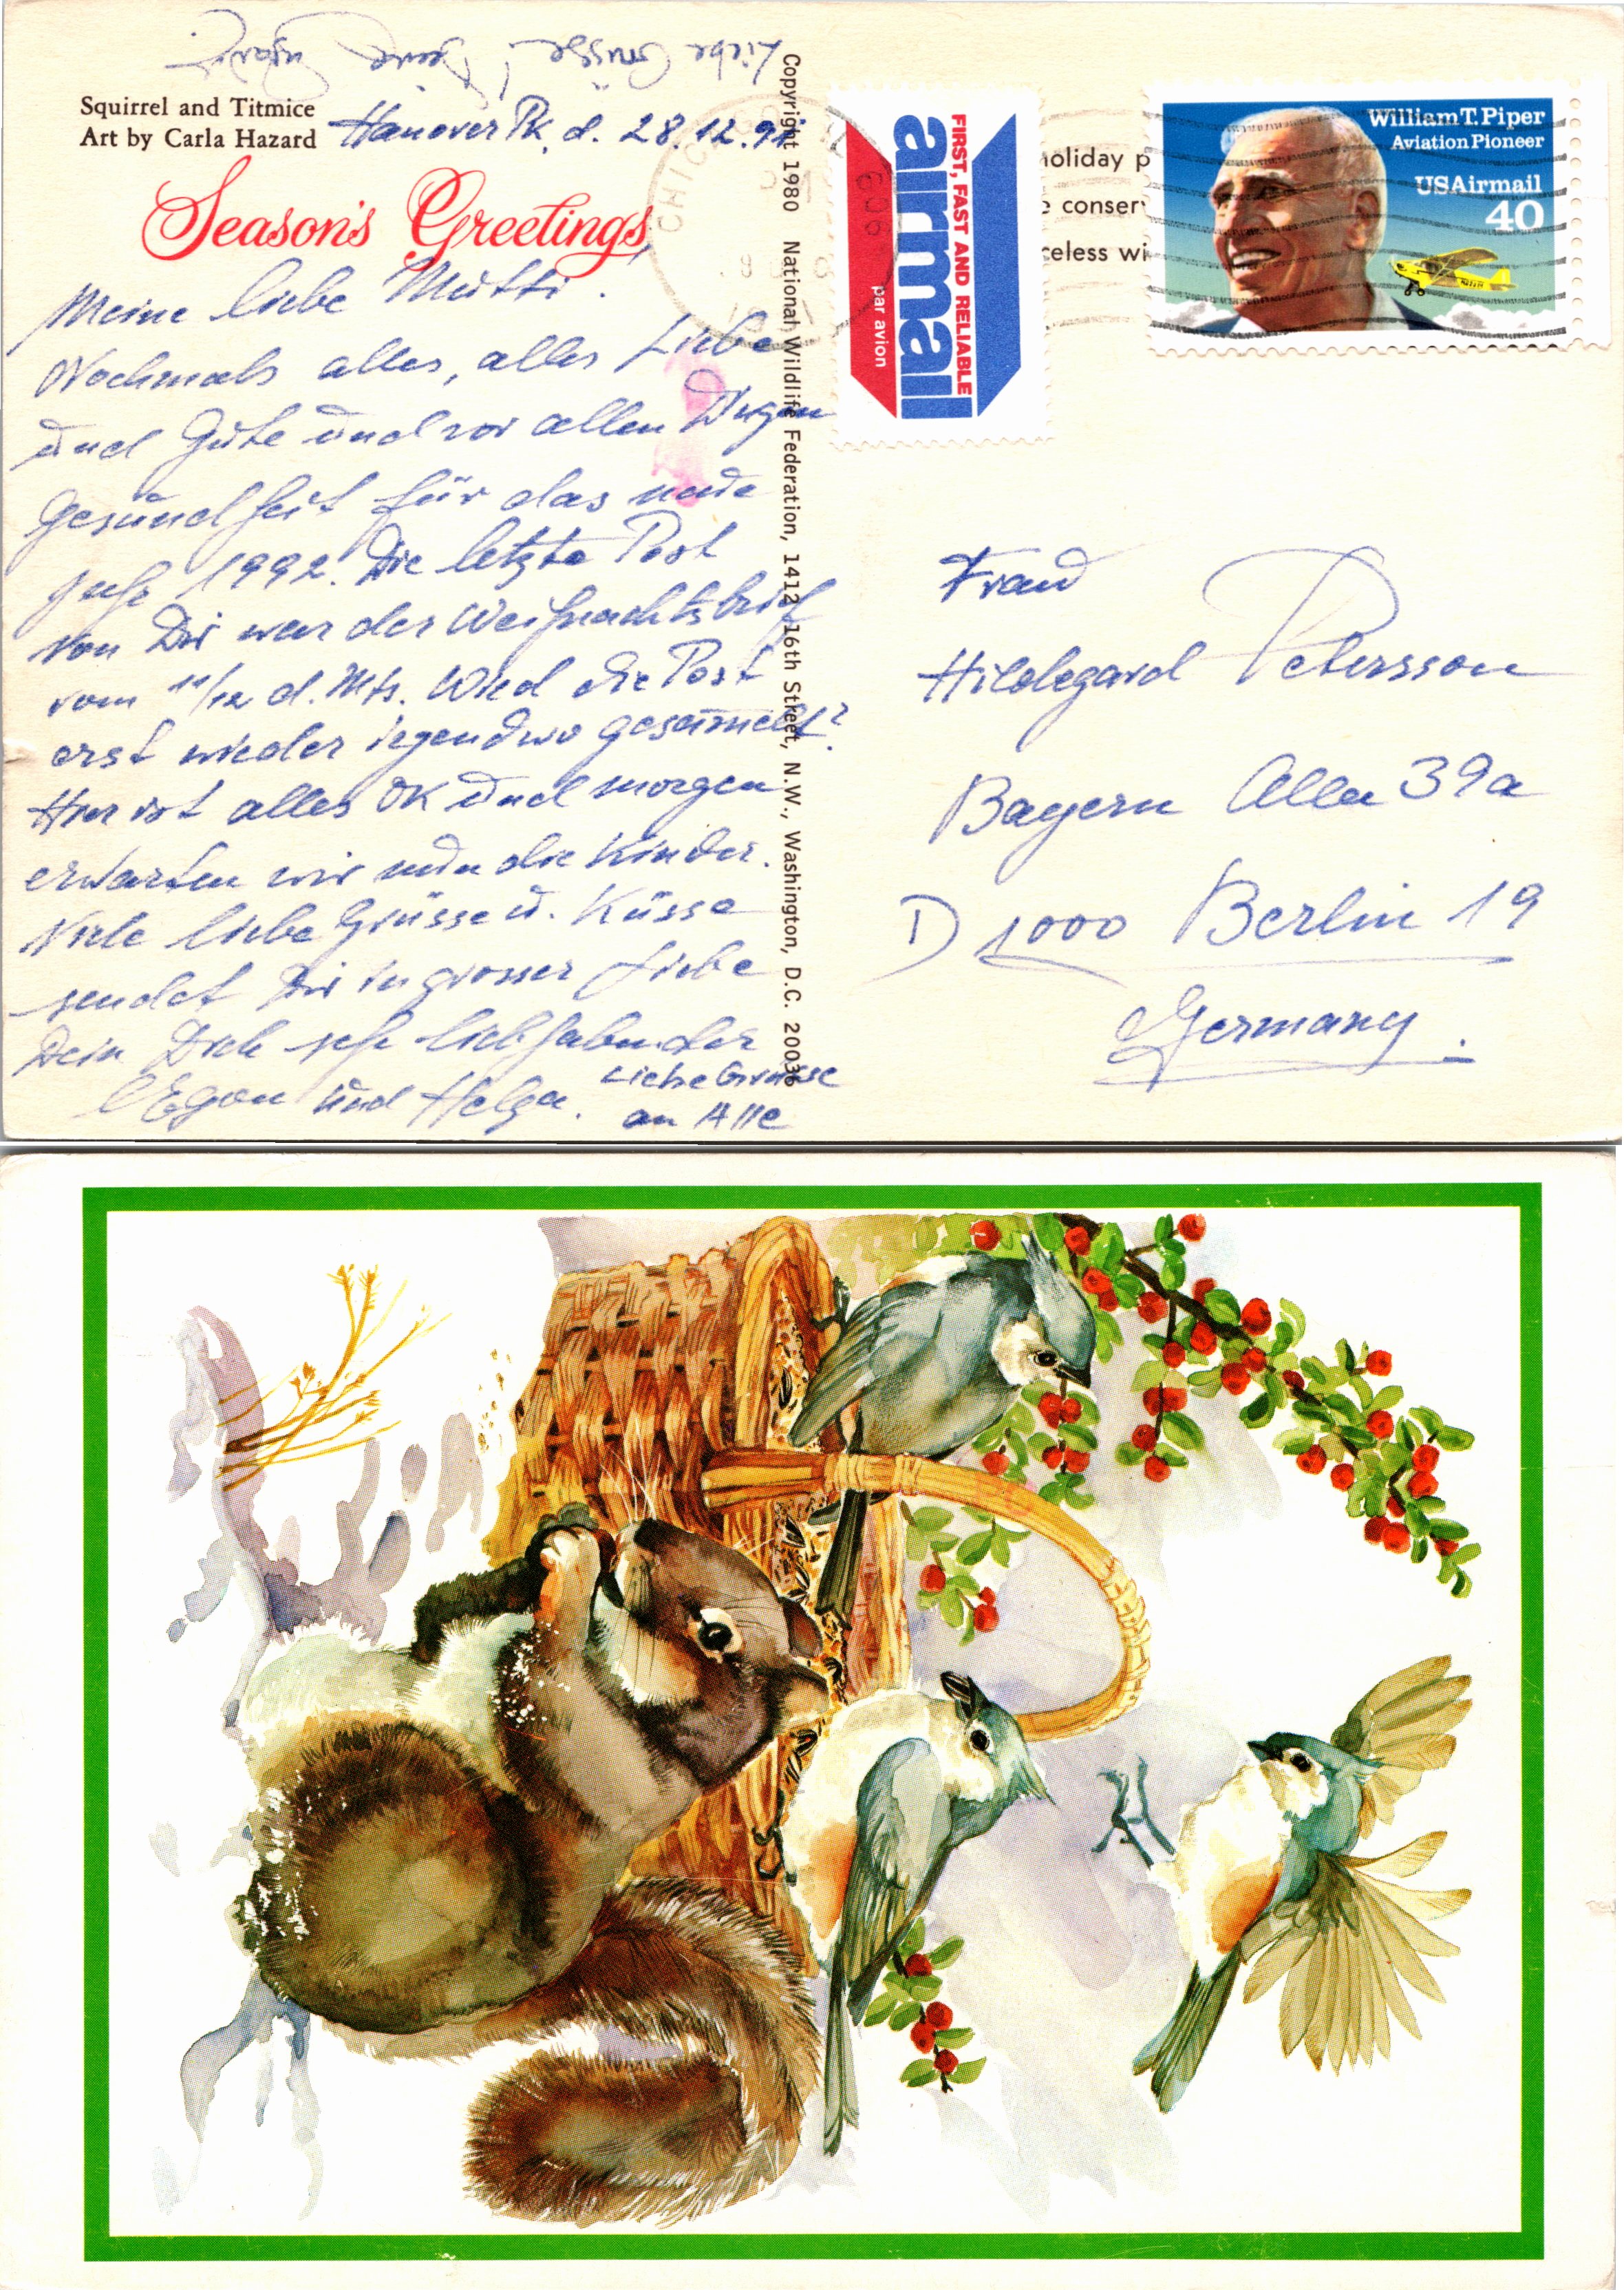 Liebe Grüsse
Squirrel and Titmice
Art by Carla Hazard
Hanover Pk. d. 28.12.91
Season's Greetings
Meine liebe Mutti!
Nochmals alles, alles Liebe
und Gute und vor allen Dingen
Gesundheit für das neue
Jahr 1992. Die letzte Post
von Dir war der Weihnachtsbrief
vom 11/12 d. Mts. Wird die Post
erst wieder irgendwo gesammelt?
Hier ist alles OK und morgen
erwarten wir nun die Kinder.
Viele liebe Grüsse u. Küsse
sendet Dir in grosser Liebe
Dein Dich sehr liebhabender
Egon und Helga.
Liebe Grüsse
an Alle
Copyright 1980 National Wildlife Federation, 1412 16th Street, N.W., Washington, D.C. 20036
CHIC
606
FIRST, FAST AND RELIABLE
airmail
par avion
holiday p
e conserv
celess wi
William T. Piper
Aviation Pioneer
USAirmail
40
Frau
Hildegard Petersson
Bayern Allee 39a
D 1000 Berlin 19
Germany.